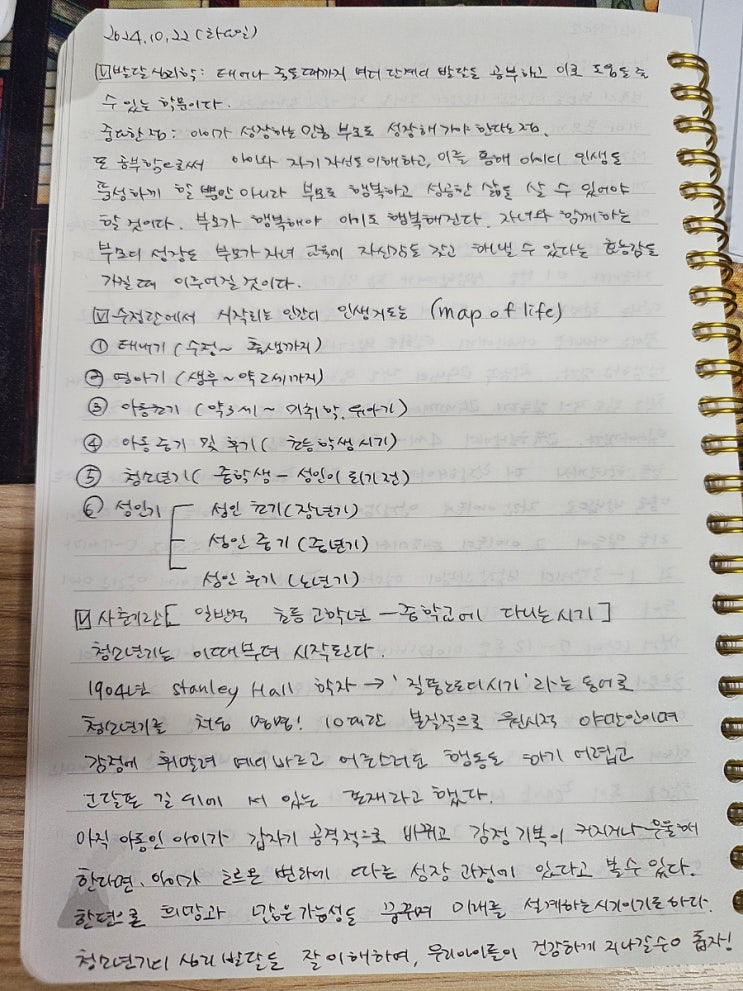 2024.10.22 (화요일)
☑ 발달심리학: 태어나 죽을때까지 여러 단계의 발달을 공부하고 이로 도움을 줄
수 있는 학문이다.
중요한점: 아이가 성장하는 만큼 부모도 성장해 가야 한다는점.
또 공부함으로써 아이와 자기 자신을 이해하고, 이를 통해 아이의 인생을
풍성하게 할 뿐만 아니라 부모로 행복하고 성공한 삶을 살 수 있어야
할 것이다. 부모가 행복해야 아이도 행복해진다. 자녀와 함께하는
부모의 성장은 부모가 자녀 교육에 자신감을 갖고 해낼 수 있다는 효능감을
가질 때 이루어질 것이다.
☑ 수정란에서 시작되는 인간의 인생지도는 (map of life)
① 태내기 (수정~ 출생까지)
② 영아기 (생후~약 2세까지)
③ 아동초기 (약 3세 ~ 미취학, 유아기)
④ 아동 중기 및 후기 ( 초등학생 시기)
⑤ 청소년기 ( 중학생 - 성인이 되기 전)
⑥ 성인기 성인 초기 (장년기)
성인 중기 (중년기)
성인 후기 (노년기)
☑ 사춘기란 [ 일반적 초등 고학년 - 중학교에 다니는 시기 ]
청소년기는 이때부터 시작된다.
1904년 Stanley Hall 학자 → '질풍노도의 시기' 라는 용어로
청소년기를 처음 명명! 10대란 본질적으로 원시적 야만인이며
감정에 휘말려 예의 바르고 어른스러운 행동을 하기 어렵고
고달픈 길 위에 서 있는 존재라고 했다.
아직 아동인 아이가 갑자기 공격적으로 바뀌고 감정 기복이 커지거나 우울해
한다면, 아이가 호르몬 변화에 따른 성장 과정에 있다고 볼 수 있다.
한편으로 희망과 많은 가능성을 꿈꾸며 미래를 설계하는 시기이기도 하다.
청소년기의 심리 발달을 잘 이해하여, 우리아이들이 건강하게 지나갈수 있게 돕자!